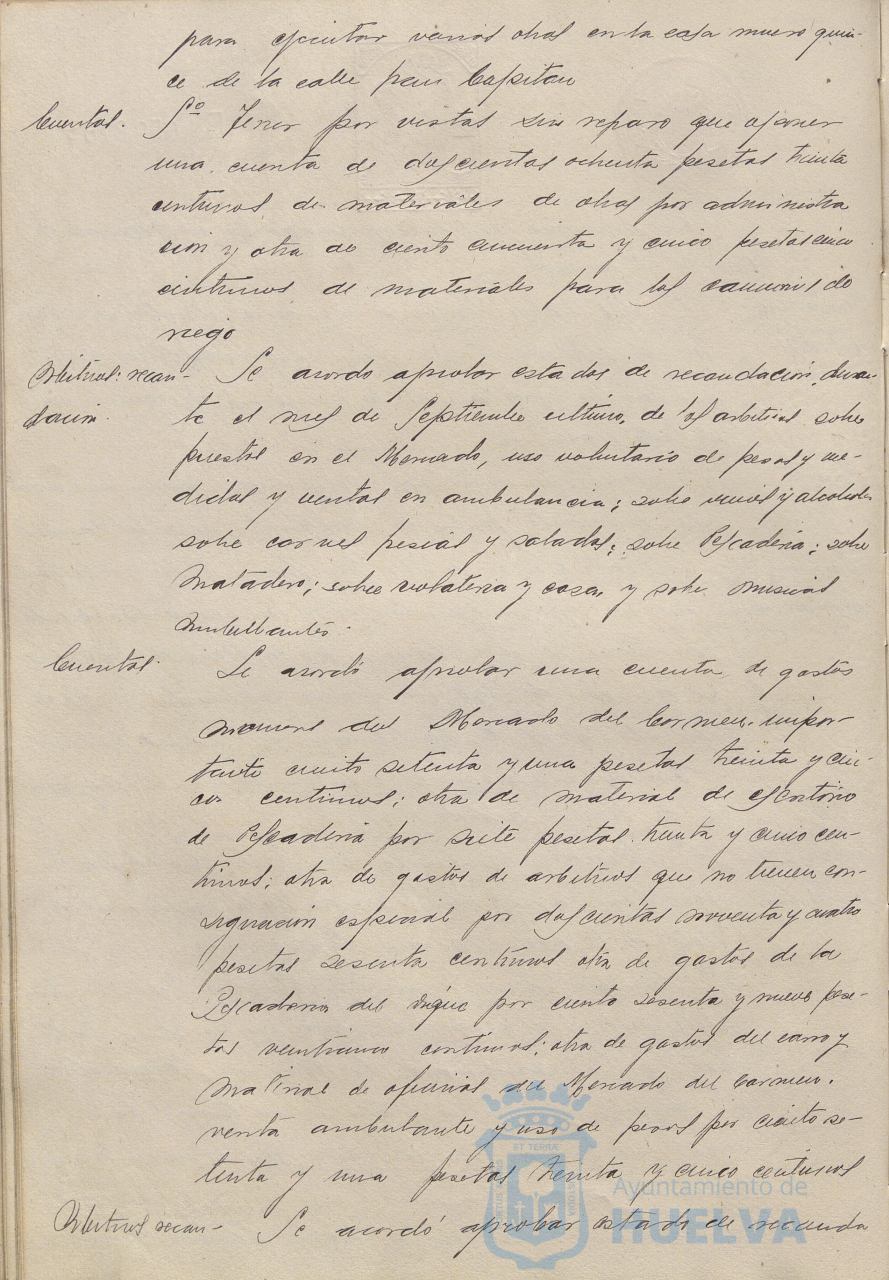 para ejecutar varias obras en la casa número quin-
ce de la calle Gran Capitan
Cuentas. 5º Tener por vistas sin reparo que oponer
una cuenta de doscientas ochenta pesetas treinta
centimos, de materiales de obras por administra
cion y otra de ciento cincuenta y cinco pesetas cinco
centimos de materiales para los camiones de
riego
Arbitrios: recau- Se acordo aprobar estados de recaudación, duran-
dacion. te el mes de Septiembre ultimo, de los arbitrios sobre
puestos en el Mercado, uso voluntario de pesas y me-
didas y ventas en ambulancia; sobre vinos y alcoholes
sobre carnes frescas y saladas; sobre Pescaderia; sobre
Matadero; sobre volateria y caza, y sobre musicas
ambulantes.
Cuentas. Se acordó aprobar una cuenta de gastos
menores del Mercado del Carmen, impor-
tante ciento setenta y una pesetas treinta y cin-
co centimos; otra de material de escritorio
de Pescaderia por siete pesetas treinta y cinco cen-
timos; otra de gastos de arbitrios que no tienen con-
signación especial por doscientas noventa y cuatro
pesetas sesenta centimos otra de gastos de la
Pescaderia del dique por ciento sesenta y nueve pese-
tas veinticinco centimos; otra de gastos del carro y
material de oficinas del Mercado del Carmen,
venta ambulante y uso de pesas por ciento se-
tenta y una pesetas treinta y cinco centimos
Arbitrios recau- Se acordó aprobar estado de recauda
ET TERRA
Ayuntamiento de
HUELVA